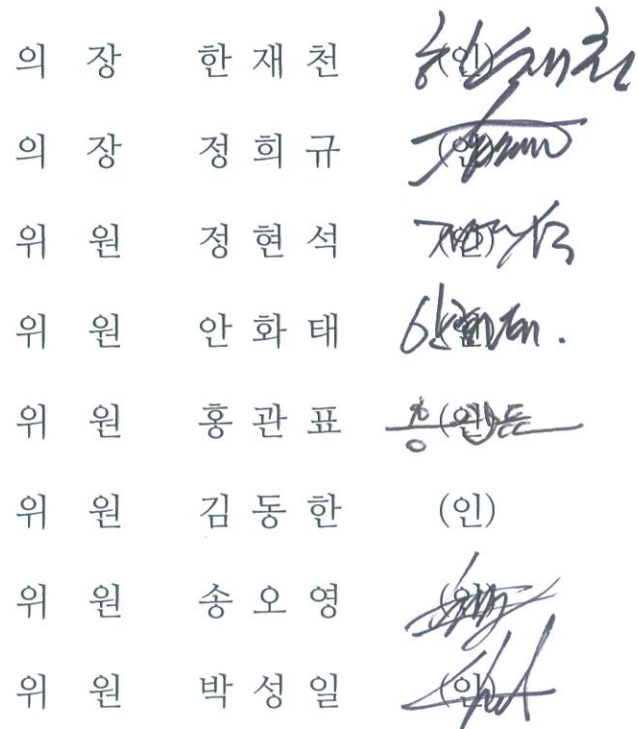 의 장 한 재 천 (인)
의 장 정 희 규 (인)
위 원 정 현 석 (인)
위 원 안 화 태 (인)
위 원 홍 관 표 (인)
위 원 김 동 한 (인)
위 원 송 오 영 (인)
위 원 박 성 일 (인)